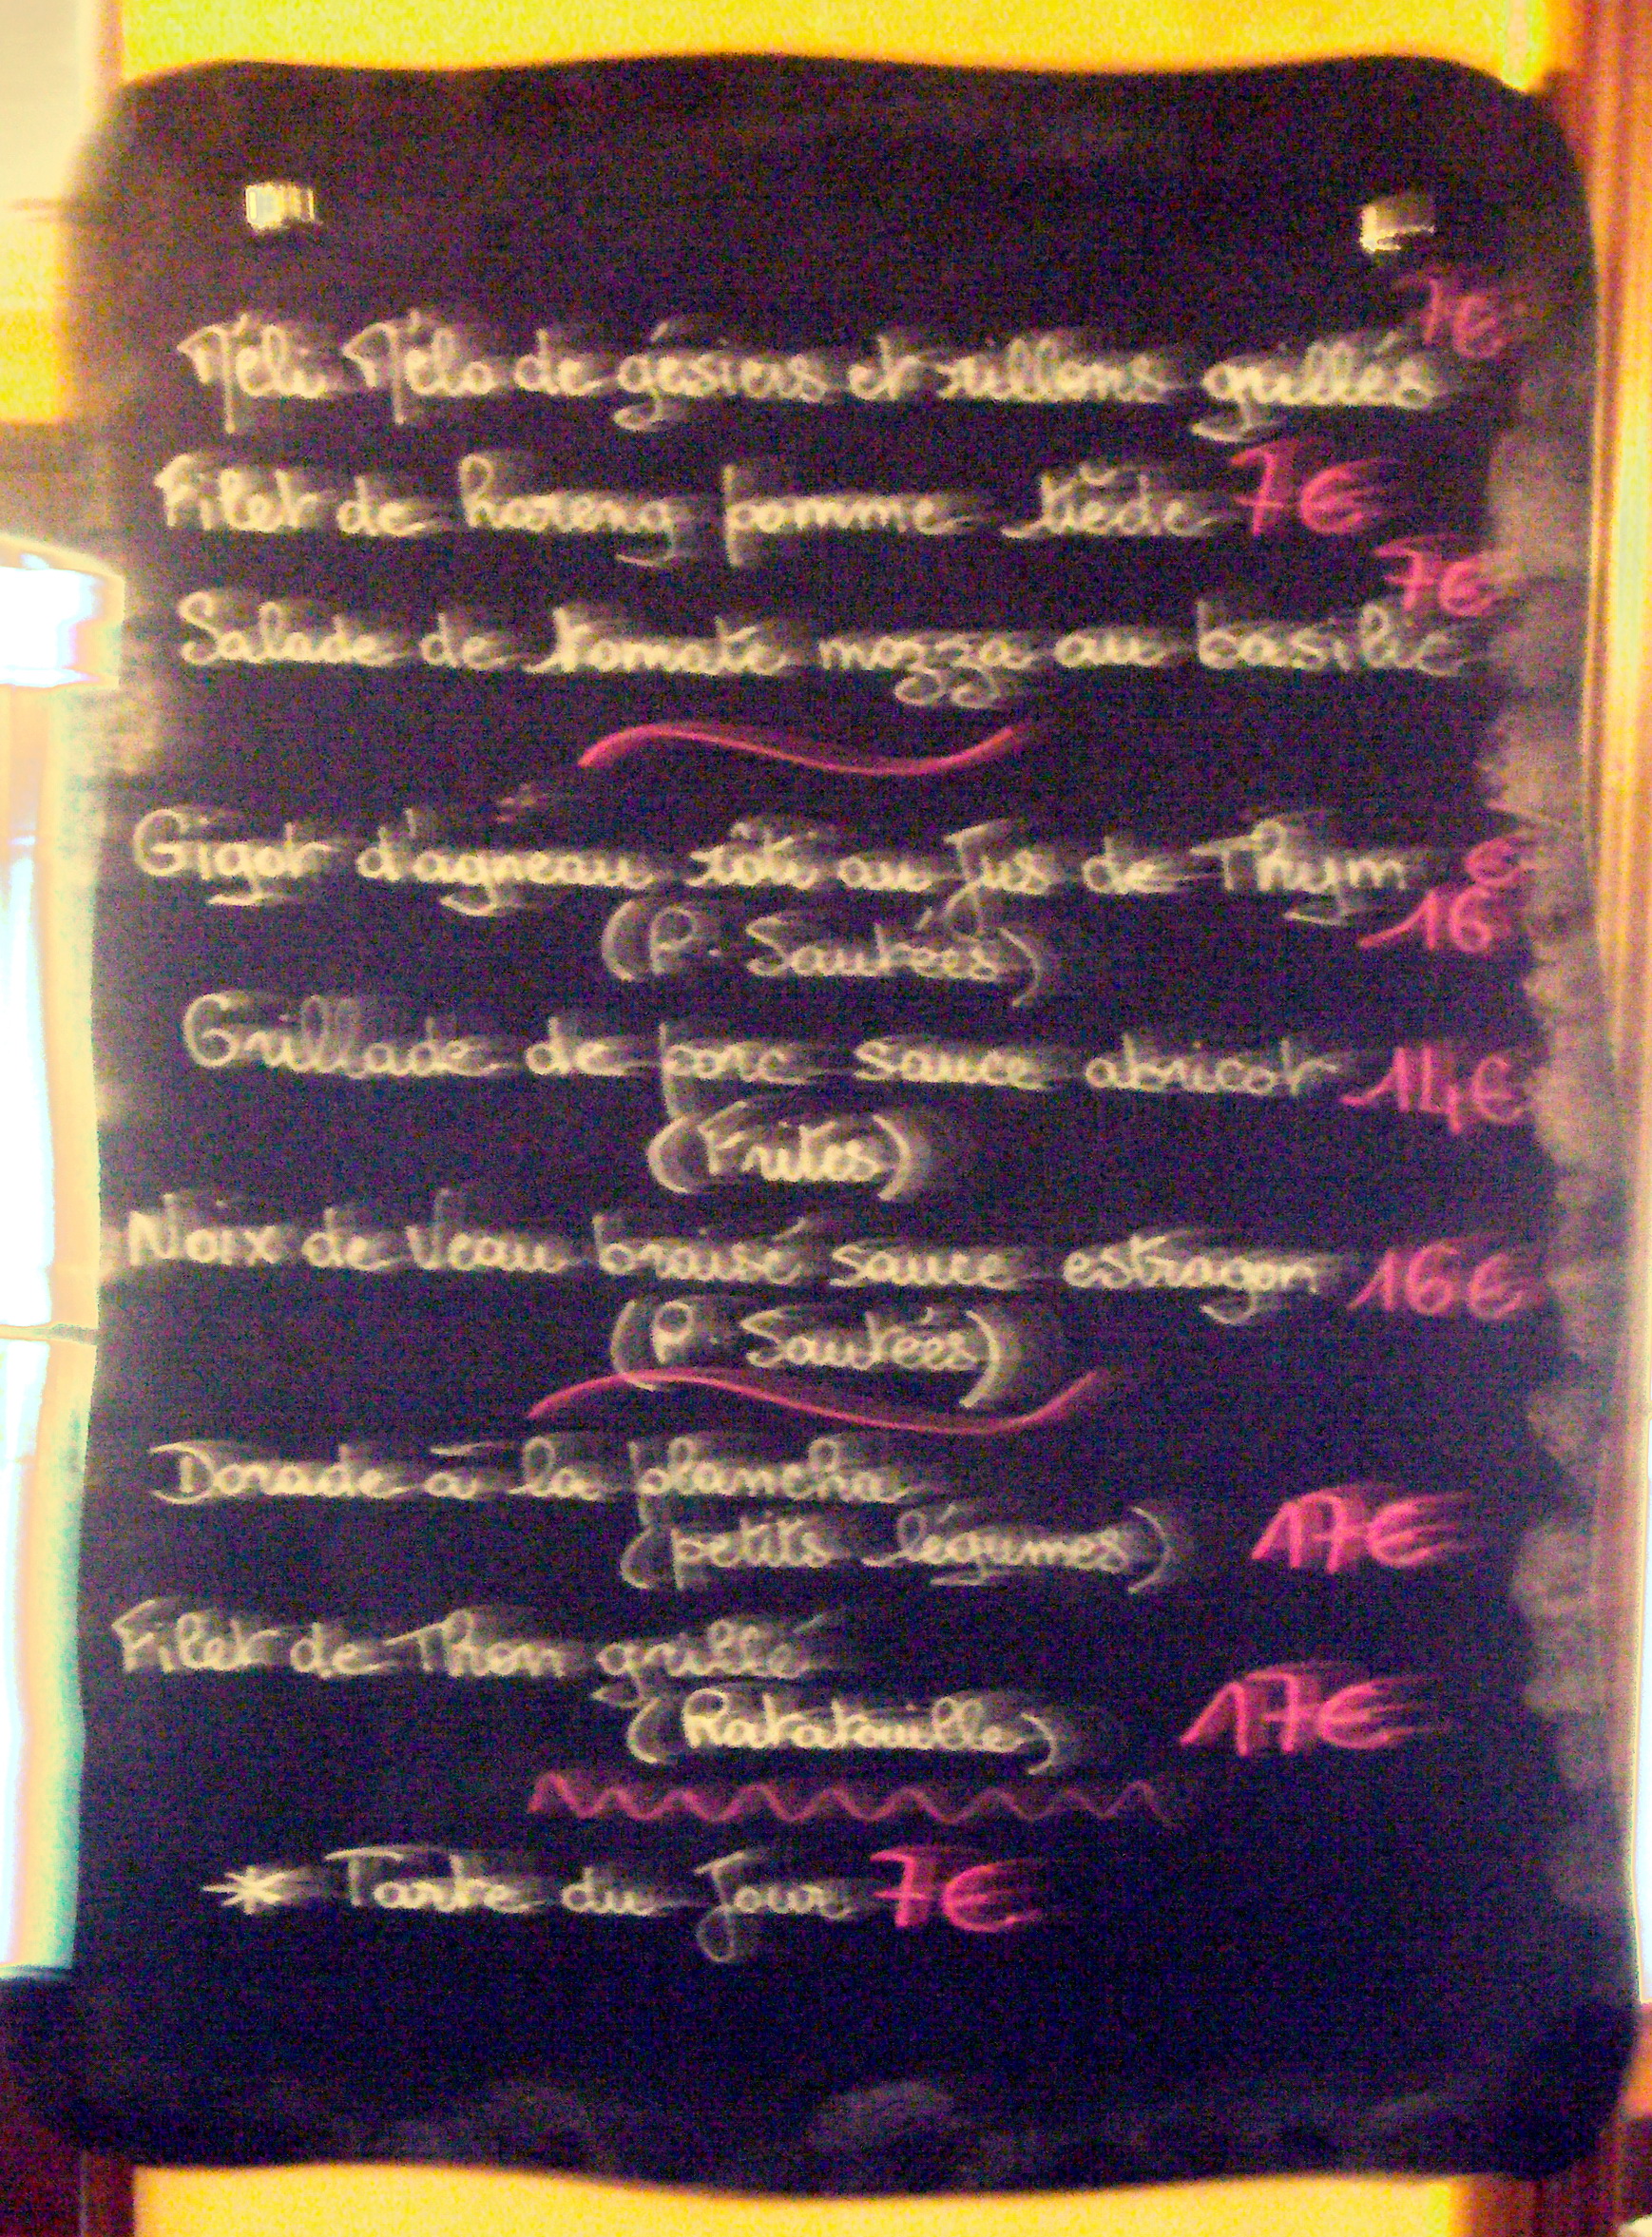 7€
Méli Mélo de gésiers et rillons grillés
Filet de hareng pomme tiède 7€
7€
Salade de tomate mozza au basilic
Gigot d'agneau rôti au Jus de Thym 16€
(P. Sautées)
Grillade de porc sauce abricot 14€
(Frites)
Noix de Veau braisé sauce estragon 16€
(P. Sautées)
Dorade à la plancha
(petits légumes) 17€
Filet de Thon grillé
(Ratatouille) 17€
* Tarte du Jour 7€